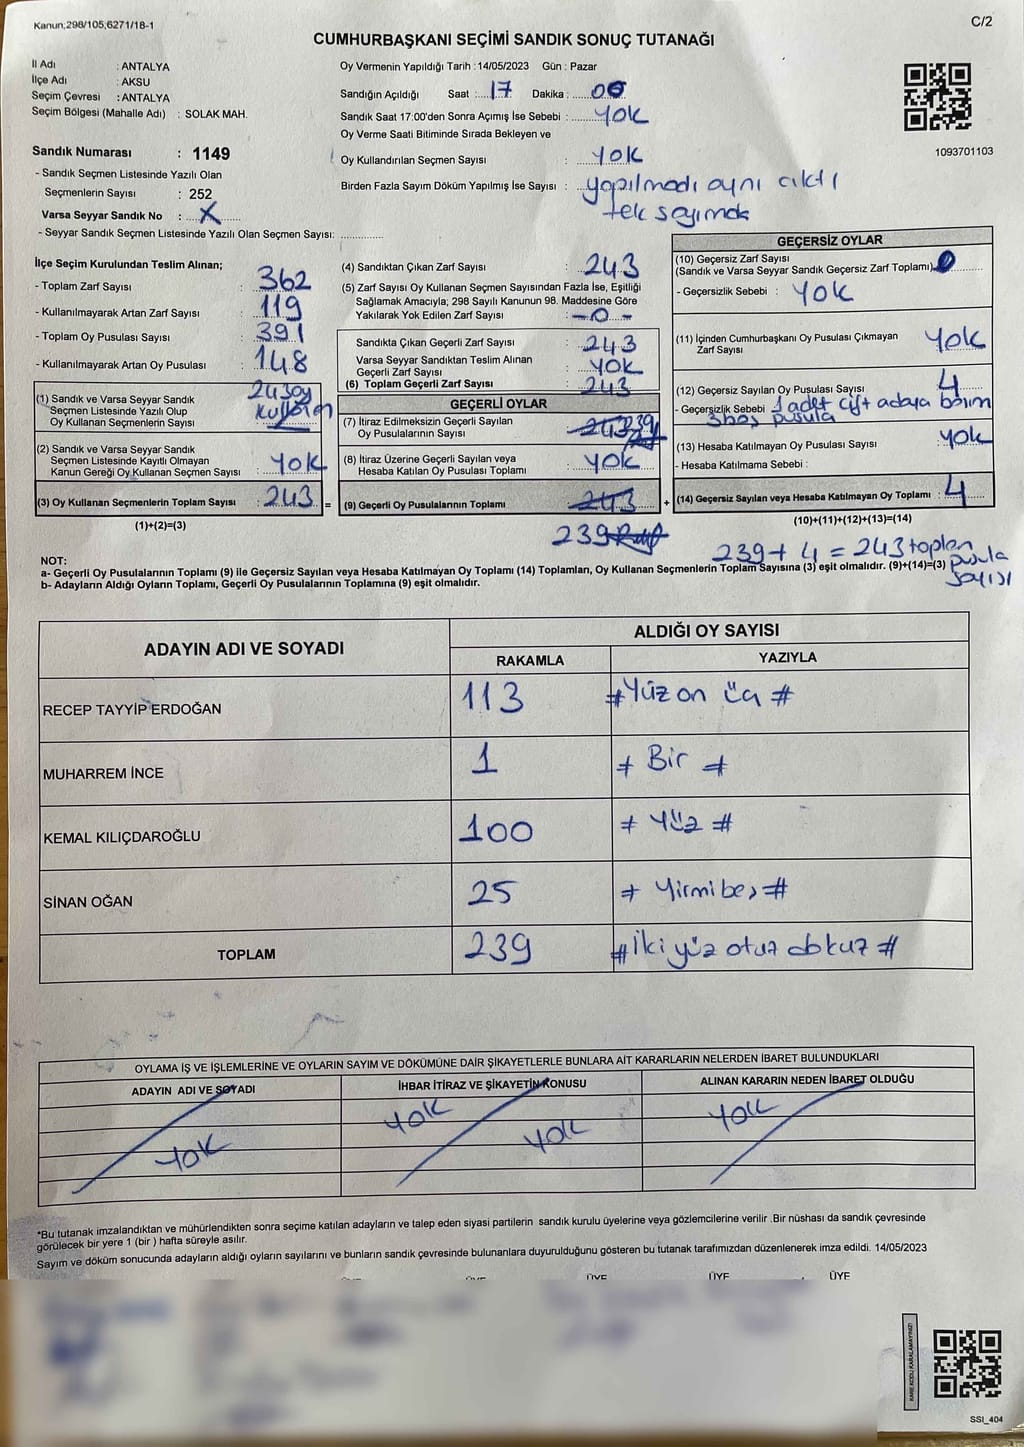 Kanun;298/105;6271/18-1
C/2
CUMHURBAŞKANI SEÇİMİ SANDIK SONUÇ TUTANAĞI
İl Adı : ANTALYA
İlçe Adı : AKSU
Seçim Çevresi : ANTALYA
Seçim Bölgesi (Mahalle Adı) : SOLAK MAH.
Sandık Numarası : 1149
- Sandık Seçmen Listesinde Yazılı Olan
Seçmenlerin Sayısı : 252
Varsa Seyyar Sandık No : X
- Seyyar Sandık Seçmen Listesinde Yazılı Olan Seçmen Sayısı:
Oy Vermenin Yapıldığı Tarih : 14/05/2023 Gün : Pazar
Sandığın Açıldığı Saat : 17 Dakika : 00
Sandık Saat 17:00'den Sonra Açımış İse Sebebi : YOK
Oy Verme Saati Bitiminde Sırada Bekleyen ve
Oy Kullandırılan Seçmen Sayısı : YOK
Birden Fazla Sayım Döküm Yapılmış İse Sayısı : yapılmadı aynı çıktı
tek sayımda
1093701103
İlçe Seçim Kurulundan Teslim Alınan;
- Toplam Zarf Sayısı : 362
- Kullanılmayarak Artan Zarf Sayısı : 119
- Toplam Oy Pusulası Sayısı : 391
- Kullanılmayarak Artan Oy Pusulası : 148
(1) Sandık ve Varsa Seyyar Sandık
Seçmen Listesinde Yazılı Olup
Oy Kullanan Seçmenlerin Sayısı : 243 oy
(2) Sandık ve Varsa Seyyar Sandık
Seçmen Listesinde Kayıtlı Olmayan
Kanun Gereği Oy Kullanan Seçmen Sayısı : YOK
(3) Oy Kullanan Seçmenlerin Toplam Sayısı : 243 =
(1)+(2)=(3)
(4) Sandıktan Çıkan Zarf Sayısı : 243
(5) Zarf Sayısı Oy Kullanan Seçmen Sayısından Fazla İse, Eşitliği
Sağlamak Amacıyla; 298 Sayılı Kanunun 98. Maddesine Göre
Yakılarak Yok Edilen Zarf Sayısı : -0-
Sandıkta Çıkan Geçerli Zarf Sayısı : 243
Varsa Seyyar Sandıktan Teslim Alınan
Geçerli Zarf Sayısı : YOK
(6) Toplam Geçerli Zarf Sayısı : 243
GEÇERLİ OYLAR
(7) İtiraz Edilmeksizin Geçerli Sayılan
Oy Pusulalarının Sayısı : 243 239
(8) İtiraz Üzerine Geçerli Sayılan veya
Hesaba Katılan Oy Pusulası Toplamı : YOK
(9) Geçerli Oy Pusulalarının Toplamı : 243 +
239
GEÇERSİZ OYLAR
(10) Geçersiz Zarf Sayısı
(Sandık ve Varsa Seyyar Sandık Geçersiz Zarf Toplamı) 0
- Geçersizlik Sebebi : YOK
(11) İçinden Cumhurbaşkanı Oy Pusulası Çıkmayan
Zarf Sayısı YOK
(12) Geçersiz Sayılan Oy Pusulası Sayısı 4
- Geçersizlik Sebebi 1 adet çift adaya basım
3 boş pusula
(13) Hesaba Katılmayan Oy Pusulası Sayısı : YOK
- Hesaba Katılmama Sebebi :
(14) Geçersiz Sayılan veya Hesaba Katılmayan Oy Toplamı : 4
(10)+(11)+(12)+(13)=(14)
239 + 4 = 243 toplam
pusula
sayısı
NOT:
a- Geçerli Oy Pusulalarının Toplamı (9) ile Geçersiz Sayılan veya Hesaba Katılmayan Oy Toplamı (14) Toplamları, Oy Kullanan Seçmenlerin Toplam Sayısına (3) eşit olmalıdır. (9)+(14)=(3)
b- Adayların Aldığı Oyların Toplamı, Geçerli Oy Pusulalarının Toplamına (9) eşit olmalıdır.
ADAYIN ADI VE SOYADI
ALDIĞI OY SAYISI
RAKAMLA
YAZIYLA
RECEP TAYYİP ERDOĞAN 113 #Yüz on üç #
MUHARREM İNCE 1 # Bir #
KEMAL KILIÇDAROĞLU 100 # Yüz #
SİNAN OĞAN 25 # Yirmibeş #
TOPLAM 239 #İki yüz otuz dokuz #
OYLAMA İŞ VE İŞLEMLERİNE VE OYLARIN SAYIM VE DÖKÜMÜNE DAİR ŞİKAYETLERLE BUNLARA AİT KARARLARIN NELERDEN İBARET BULUNDUKLARI
ADAYIN ADI VE SOYADI
İHBAR İTİRAZ VE ŞİKAYETİN KONUSU
ALINAN KARARIN NEDEN İBARET OLDUĞU
YOK
YOK
YOK
YOK
*Bu tutanak imzalandıktan ve mühürlendikten sonra seçime katılan adayların ve talep eden siyasi partilerin sandık kurulu üyelerine veya gözlemcilerine verilir .Bir nüshası da sandık çevresinde
görülecek bir yere 1 (bir ) hafta süreyle asılır.
Sayım ve döküm sonucunda adayların aldığı oyların sayılarını ve bunların sandık çevresinde bulunanlara duyurulduğunu gösteren bu tutanak tarafımızdan düzenlenerek imza edildi. 14/05/2023
ÜYE ÜYE ÜYE
KARE KODU KARALAMAYINIZ!
SSI_404